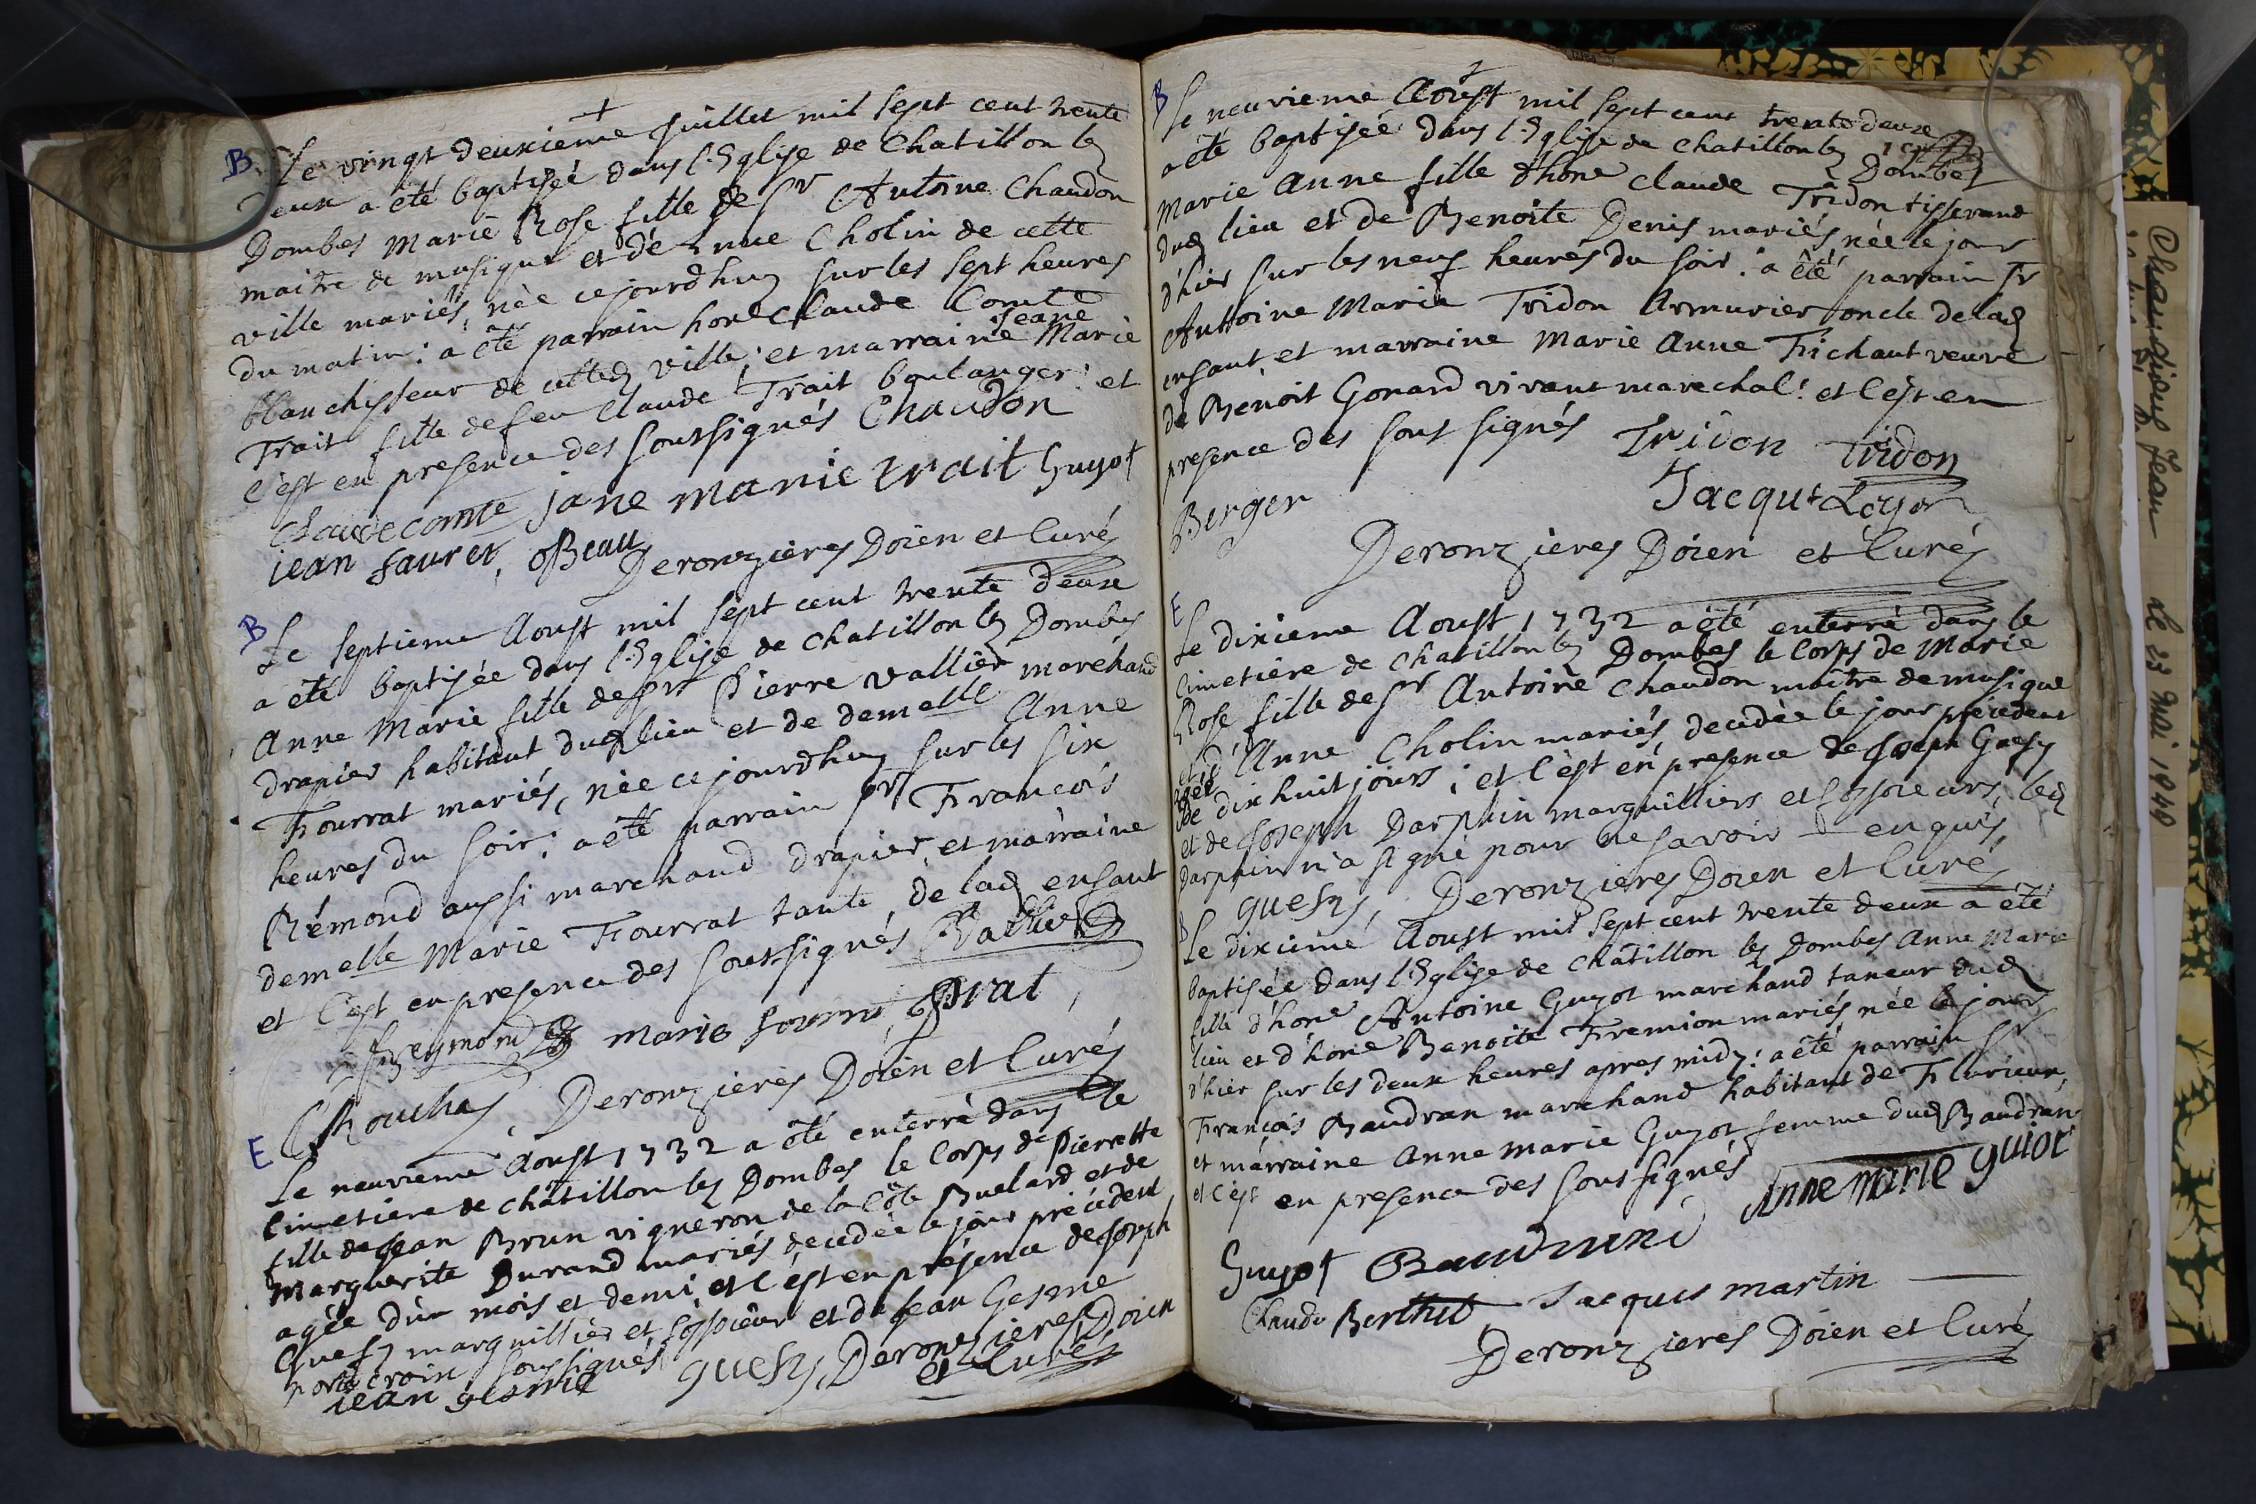 +
B Le vingt deuxieme Juillet mil sept cent trente
deux a eté baptisée dans l'Eglise de Chatillon les
Dombes Marie Rose fille de Sr Antoine Chaudon
maitre de musique et de Anne Cholin de cette
ville mariés, née cejourdhuy sur les sept heures
du matin: a eté parrain hone Claude Comte
blanchisseur de cetted ville; et marraine Jeane Marie
Trait fille de feu Claude Trait boulanger: et
c'est en presence des soussignés Chaudon
Claude comte jane marie trait Guyot
jean faurer, Beau
Deronzieres Doien et Curé
B Le septieme Aoust mil sept cent trente deux
a eté baptisée dans l'Eglise de Chatillon les Dombes
Anne Marie fille de Sr Pierre Vallier marchand
drapier habitant dud lieu et de demelle Anne
Fourrat mariés, née ce jourdhuy sur les six
heures du soir: a eté parrain Sr François
Rémond aussi marchand drapier et marraine
demelle Marie Fourrat tante de lad enfant
et c'est en presence des soussignés Vallier
f reymond marie fourrat, Prat
Deronzieres Doien et Curé
E Le neuvieme Aoust 1732 a eté enterré dans le
Cimetiere de chatillon les Dombes le Corps de Pierrette
fille de Jean Brun vigneron de la Côte Buelard et de
Marguerite Durand mariés, decedée le jour précédent
agée d'un mois et demi, et c'est en présence de Joseph
Guesy marguillier et fossoieur et de Jean Gesme
porte croix soussignés guesy, Deronzieres Doien
jean gesme et Curé
+
B Le neuvieme Aoust mil sept cent trente deuxe
a eté baptisée dans l'Eglise de chatillon les Dombes
Marie Anne fille d'hone Claude Tridon tisserand
dud lieu et de Benoite Denis mariés, née le jour
d'hier sur les neuf heures du soir: a eté parrain Sr
Antoine Marie Tridon Armurier oncle de lad
enfant et marraine Marie Anne Trichaut veuve
de Benoit Gonard vivant marechal: et c'est en
presence des soussignés Tridon Tridon
Berger Jacque Loyon
Deronzieres Doien et Curé
E
Le dixieme Aoust 1732 a eté enterré dans le
Cimetiere de chatillon les Dombes le Corps de Marie
Rose fille de Sr Antoine Chaudon maitre de musique
et d'Anne Cholin mariés decedée le jour precedent
agée de dix huit jours; et c'est en presence de Joseph Guesy
et de Joseph Darphin marguilliers et fossoieurs, led
Darphin n'a signé pour ne savoir enquis
guesy, Deronzieres Doien et Curé
Le dixieme Aoust mil sept cent trente deux a eté
baptisée dans l'Eglise de chatillon les Dombes Anne Marie
fille d'hone Antoine Guyot marchand taneur dud
lieu et d'hone Benoite Fremion mariés née le jour
d'hier sur les deux heures apres midy: a eté parrain Sr
François Baudran marchand habitant de Flurieux
et marraine Anne Marie Guyot femme dud Baudran
et c'est en presence des soussignés Anne marie guiot
Guyot Baudrand
Claude Berthet Jacques martin
Deronzieres Doien et Curé
Jean Le 23 mai 1940